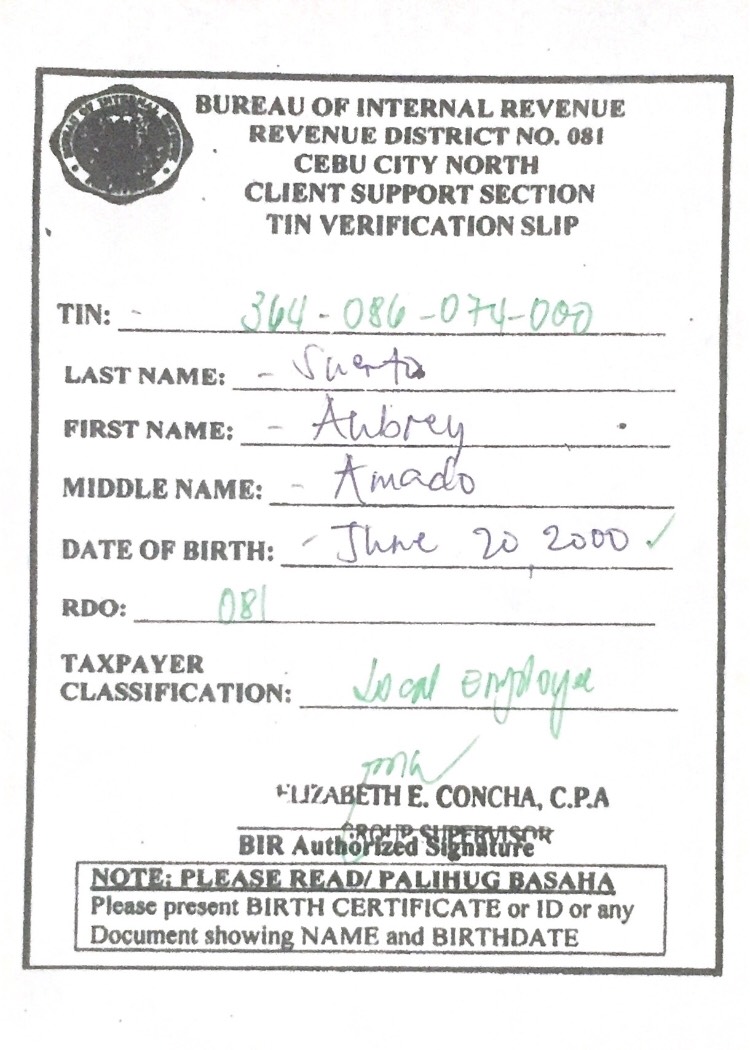 BUREAU OF INTERNAL REVENUE
REVENUE DISTRICT NO. 081
CEBU CITY NORTH
CLIENT SUPPORT SECTION
TIN VERIFICATION SLIP
TIN: - 364-086-074-000
LAST NAME: -
FIRST NAME: - Aubrey
MIDDLE NAME: - Amado
DATE OF BIRTH: - June 20, 2000 ✓
RDO: 081
TAXPAYER
CLASSIFICATION: Local employee
ELIZABETH E. CONCHA, C.P.A
GROUP SUPERVISOR
BIR Authorized Signature
NOTE: PLEASE READ/ PALIHUG BASAHA
Please present BIRTH CERTIFICATE or ID or any
Document showing NAME and BIRTHDATE